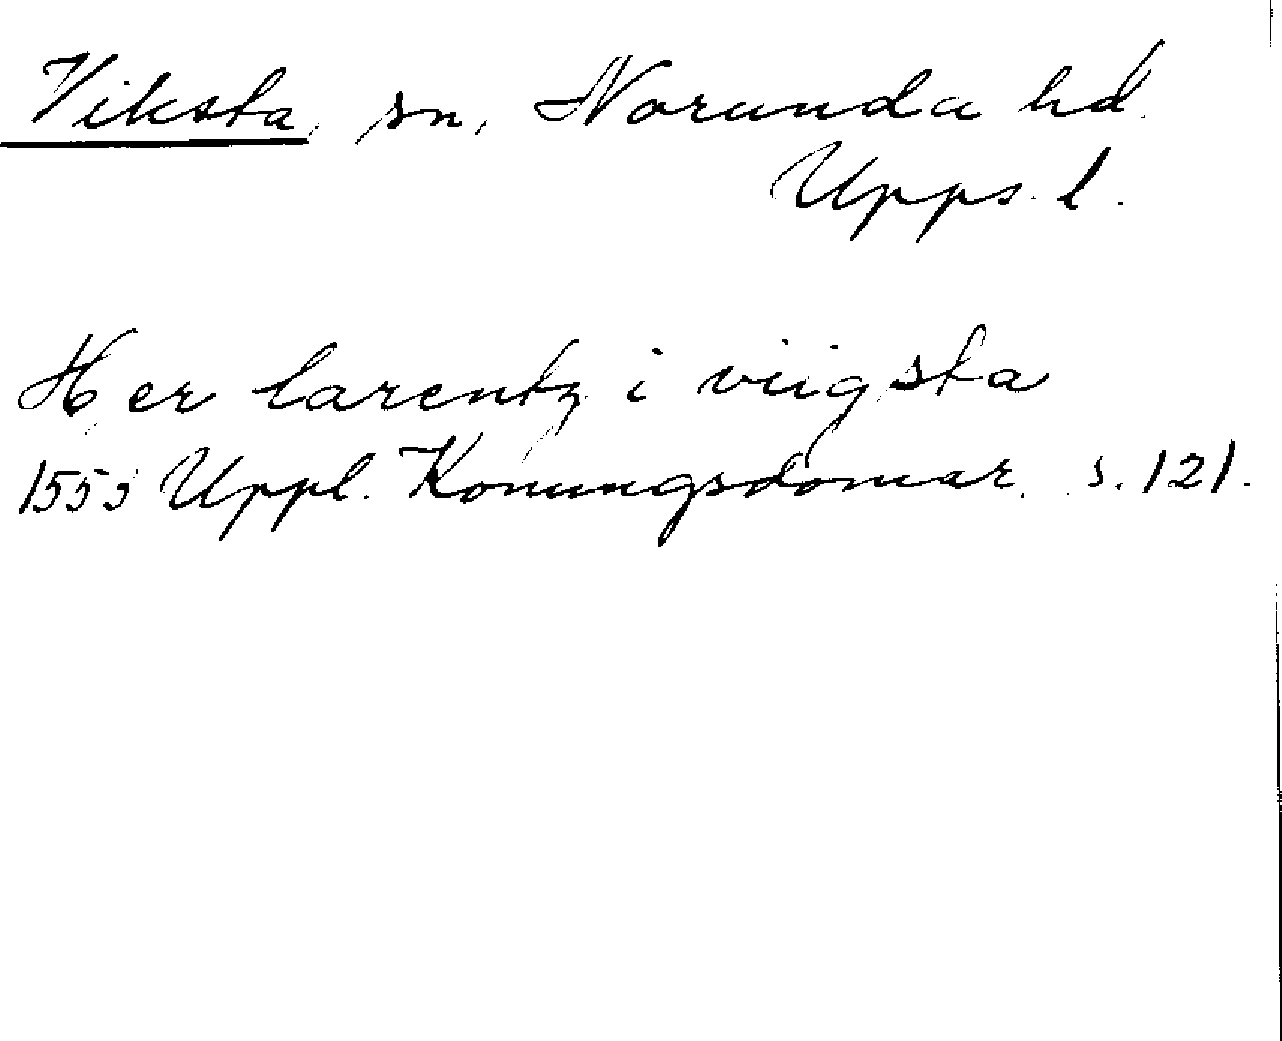 Viksta, sn, Norunda hd.
Upps. l.
Her larentz i viigsta
1555 Uppl. Konungsdomar s. 121.